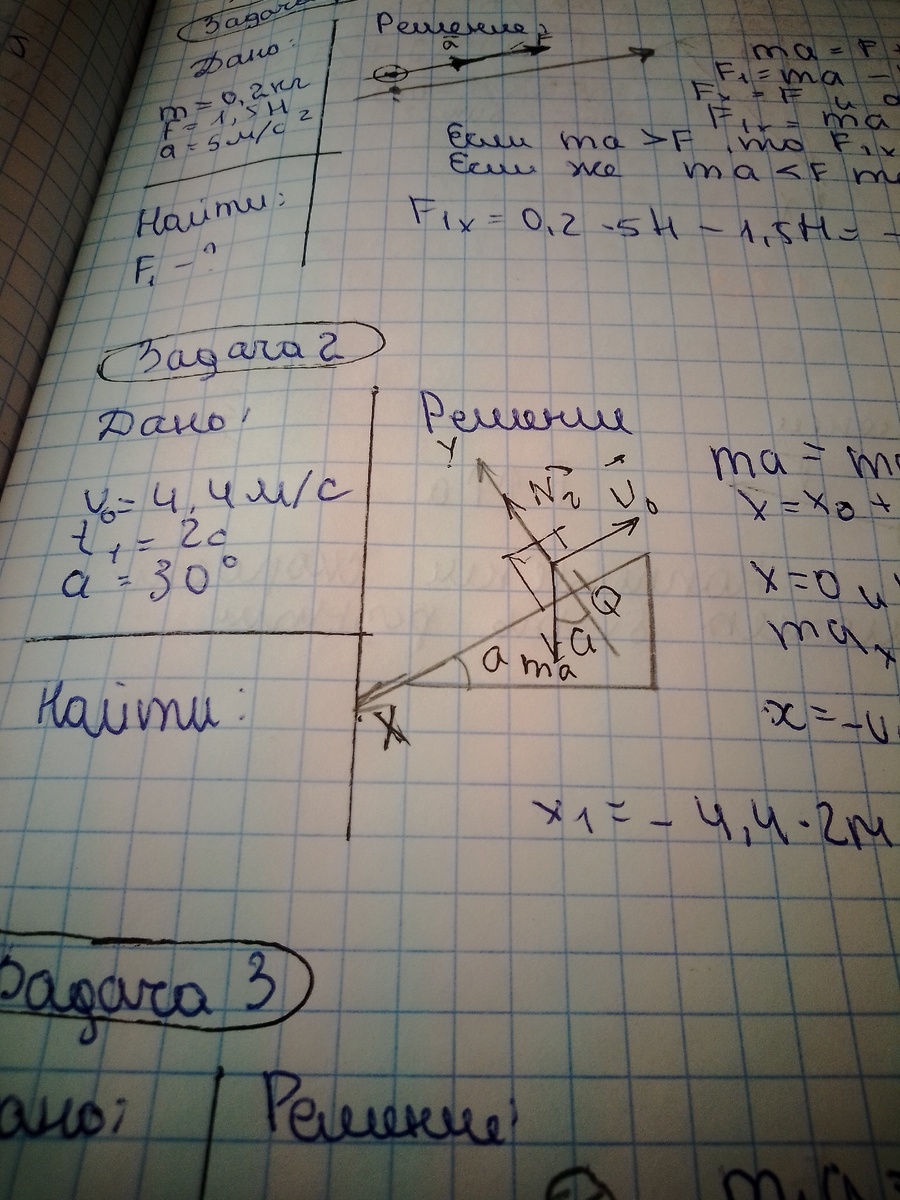 Задача
Дано:
m = 0,2 кг
F = 1,5 Н
a = 5 м/с²
Найти:
F₁ - ?
Решение:
a F
ma = F +
F₁ = ma -
F₁ₓ = ma
Если ma > F, то F₁ₓ
Если же ma < F
F₁ₓ = 0,2 · 5Н - 1,5Н = -
Задача 2
Дано:
v₀ = 4,4 м/с
t₁ = 2с
a = 30°
Найти:
Решение
Y N₂ v₀
Q
a ma a
X
ma = m
x = x₀ +
x = 0 и
maₓ
x = -v
x₁ = - 4,4 · 2м
Задача 3
ано:
Решение:
ma =